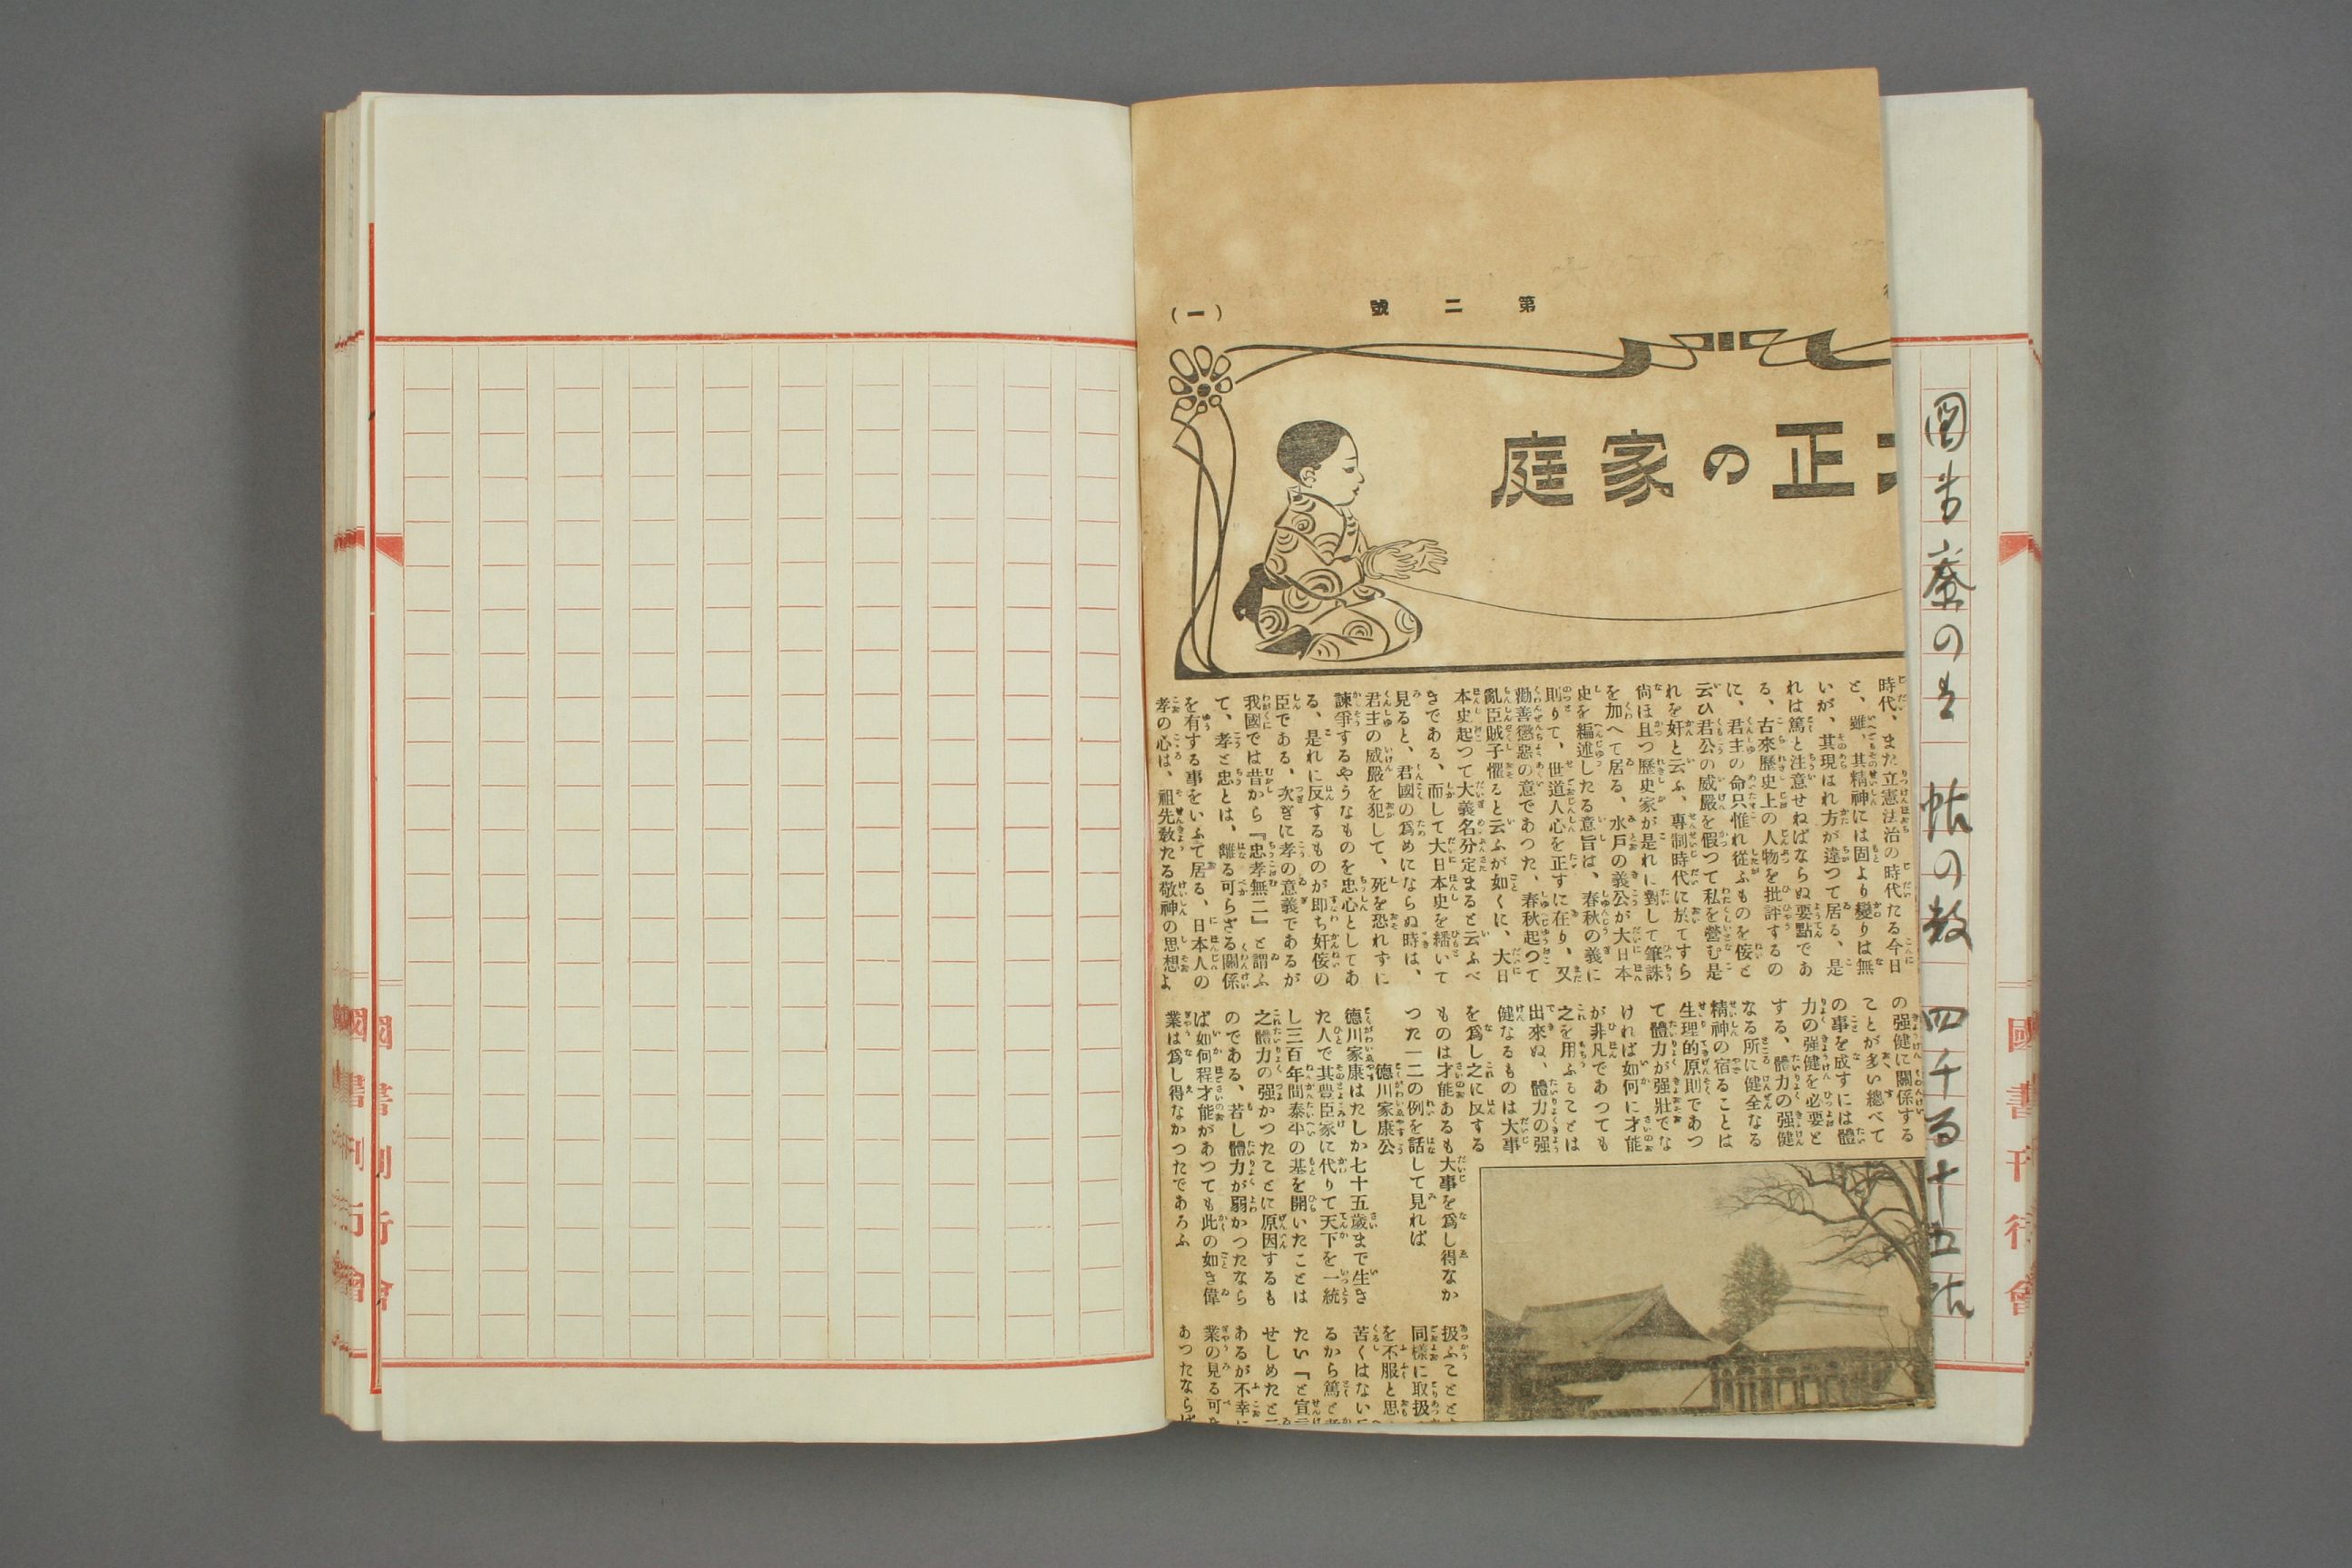 圖書寮の是 帖の数 四千百十五帖
國書刊行會
第二號
(一)
正の家庭
時代、また立憲法治の時代たる今日
と、雖、其精神には固より變りは無
いが、其現はれ方が違つて居る、是
れは篤と注意せねばならぬ要點であ
る、古來歷史上の人物を批評するの
に、君主の命只惟れ從ふものを侫と
云ひ君公の威嚴を假つて私を營む是
れを奸と云ふ、專制時代に於てすら
尙ほ且つ歷史家が是れに對して筆誅
を加へて居る、水戶の義公が大日本
史を編述したる意旨は、春秋の義に
則りて、世道人心を正すに在り、又
勸善懲惡の意であつた、春秋起つて
亂臣賊子懼ると云ふが如くに、大日
本史起つて大義名分定まると云ふべ
きである、而して大日本史を繙いて
見ると、君國の爲めにならぬ時は、
君主の威嚴を犯して、死を恐れずに
諫爭するやうなものを忠心としてあ
る、是れに反するものが卽ち奸侫の
臣である、次ぎに孝の意義であるが
我國では昔から『忠孝無二』と謂ふ
て、孝と忠とは、離る可らざる關係
を有する事をいふて居る、日本人の
孝の心は、祖先敎たる敬神の思想よ
の强健に關係する
ことが多い總べて
の事を成すには體
力の强健を必要と
する、體力の强健
なる所に健全なる
精神の宿ることは
生理的原則であつ
て體力が强壯でな
ければ如何に才能
が非凡であつても
之を用ふることは
出來ぬ、體力の强
健なるものは大事
を爲し之に反する
ものは才能あるも大事を爲し得なか
つた一二の例を話して見れば
德川家康公
德川家康はたしか七十五歲まで生き
た人で其豊臣家に代りて天下を一統
し三百年間泰平の基を開いたことは
之體力の强かつたことに原因するも
のである、若し體力が弱かつたなら
ば如何程才能があつても此の如き偉
業は爲し得なかつたであろふ
扱ふことと
同樣に取扱
を不服と思
苦くはない
るから篤と
たい「と宣
せしめたと
あるが不幸に
業の見る可
あつたならば
國書刊行會